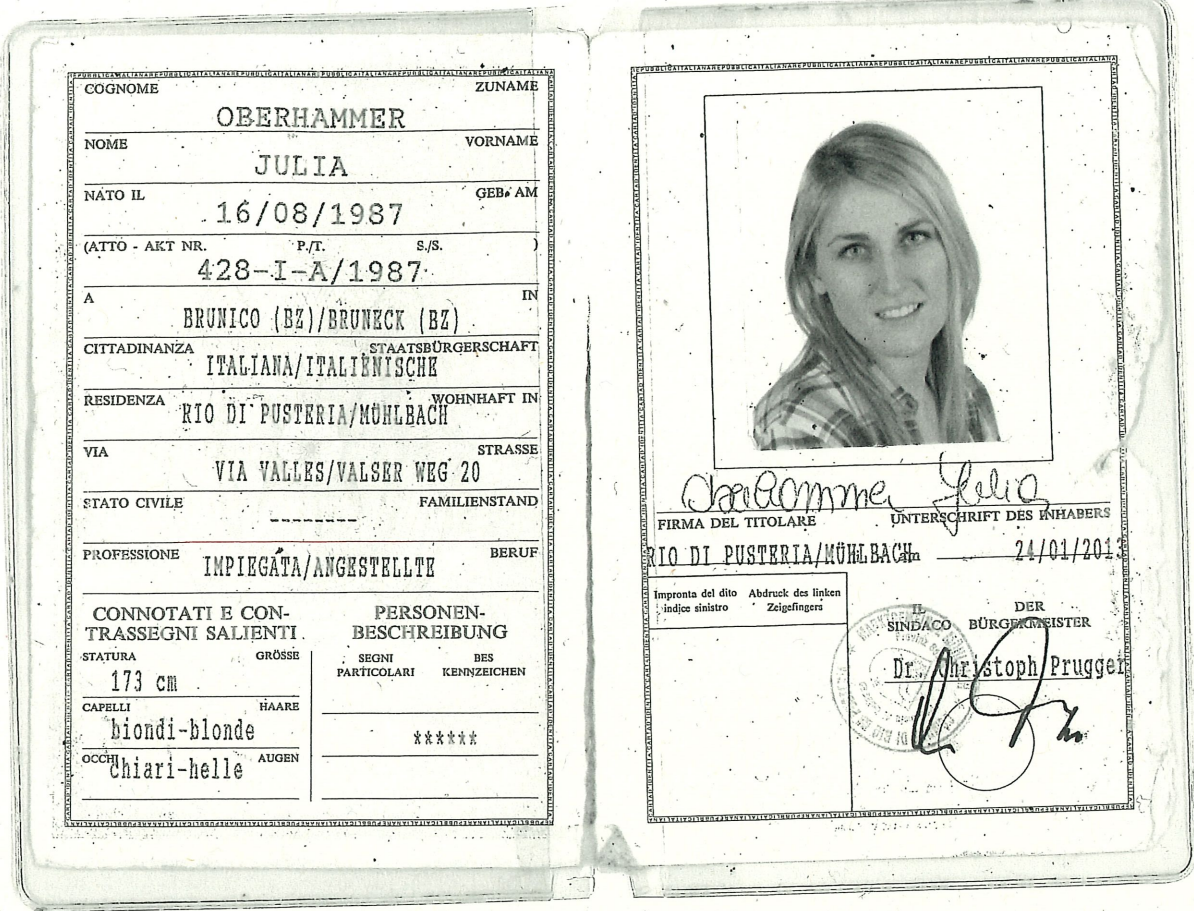 COGNOME ZUNAME
OBERHAMMER
NOME VORNAME
JULIA
NATO IL GEB. AM
16/08/1987
(ATTO - AKT NR. P./T. S./S. )
428-I-A/1987
A IN
BRUNICO (BZ)/BRUNECK (BZ)
CITTADINANZA STAATSBÜRGERSCHAFT
ITALIANA/ITALIENISCHE
RESIDENZA WOHNHAFT IN
RIO DI PUSTERIA/MÜHLBACH
VIA STRASSE
VIA VALLES/VALSER WEG 20
STATO CIVILE FAMILIENSTAND
--------
PROFESSIONE BERUF
IMPIEGATA/ANGESTELLTE
CONNOTATI E CON-
TRASSEGNI SALIENTI
PERSONEN-
BESCHREIBUNG
STATURA GRÖSSE
173 cm
CAPELLI HAARE
biondi-blonde
OCCHI AUGEN
Chiari-helle
SEGNI BES
PARTICOLARI KENNZEICHEN
******
Oberhammer Julia
FIRMA DEL TITOLARE UNTERSCHRIFT DES INHABERS
RIO DI PUSTERIA/MÜHLBACH 24/01/2013
Impronta del dito Abdruck des linken
indice sinistro Zeigefingers
IL DER
SINDACO BÜRGERMEISTER
Dr. Christoph Prugger